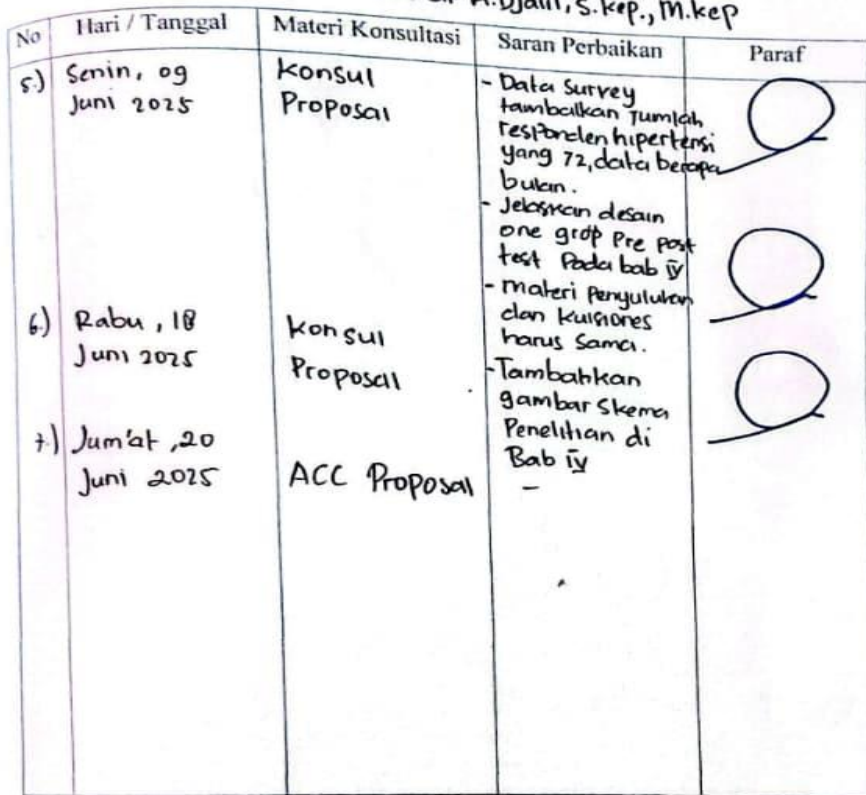 A.Djalil, S.kep., M.kep
No Hari / Tanggal Materi Konsultasi Saran Perbaikan Paraf
5.) Senin, 09
Juni 2025
Konsul
Proposal
- Data Survey
tambalkan Jumlah
responden hipertensi
yang 72, data berapa
bulan.
- Jelaskan desain
one grop Pre post
test Pada bab iv
- materi Penyuluhan
dan kuisiones
harus sama.
6.) Rabu, 18
Juni 2025
Konsul
Proposal
- Tambahkan
gambar Skema
Penelitian di
Bab iv
7.) Jum'at, 20
Juni 2025
ACC Proposal
-